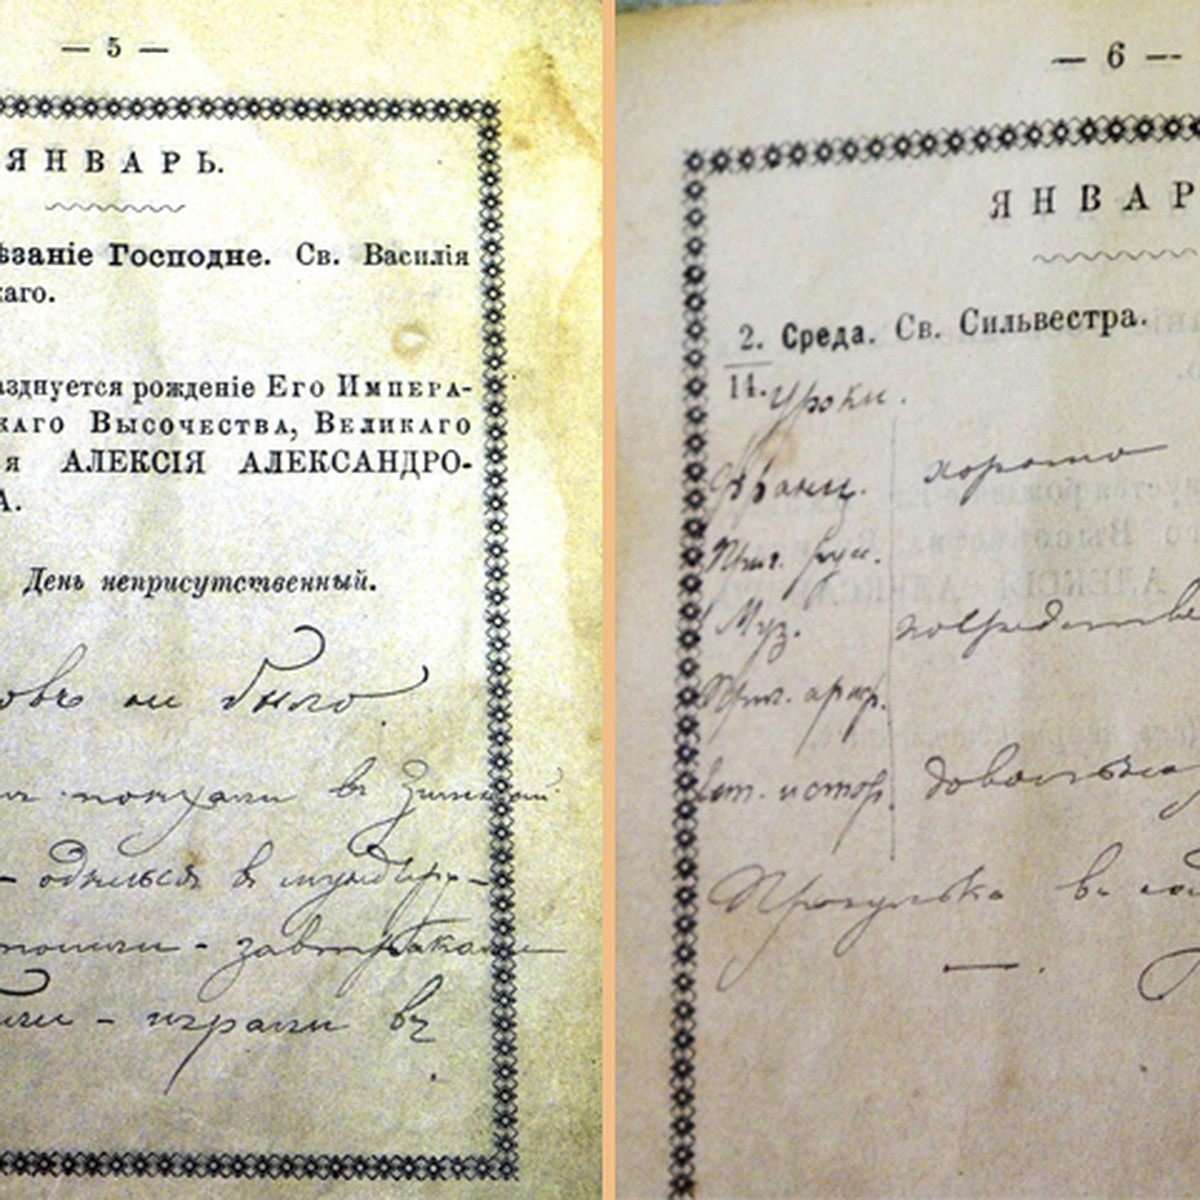 — 5 —
ЯНВАРЬ.
ѣзаніе Господне. Св. Василія
каго.
азднуется рожденіе Его Импера-
каго Высочества, Великаго
я АЛЕКСІЯ АЛЕКСАНДРО-
А.
День неприсутственный.
овъ не было
поѣхали въ Зимний
– одѣлся въ мундиръ –
– завтракали
– играли въ
— 6 —
ЯНВАР
2. Среда. Св. Сильвестра.
14.
Уроки.
Франц. хорошо
Приг. рус.
Муз. посредстве
Приг. ариф.
истор. довольно
Прогулка въ сад